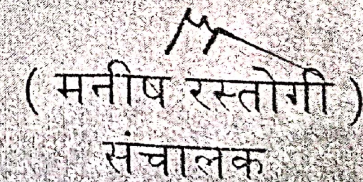 ( मनीष रस्तोगी )
संचालक